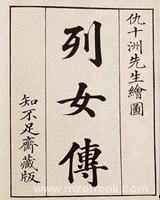 仇十洲先生繪圖
列女傳
知不足齋藏版
www.mzebook.com